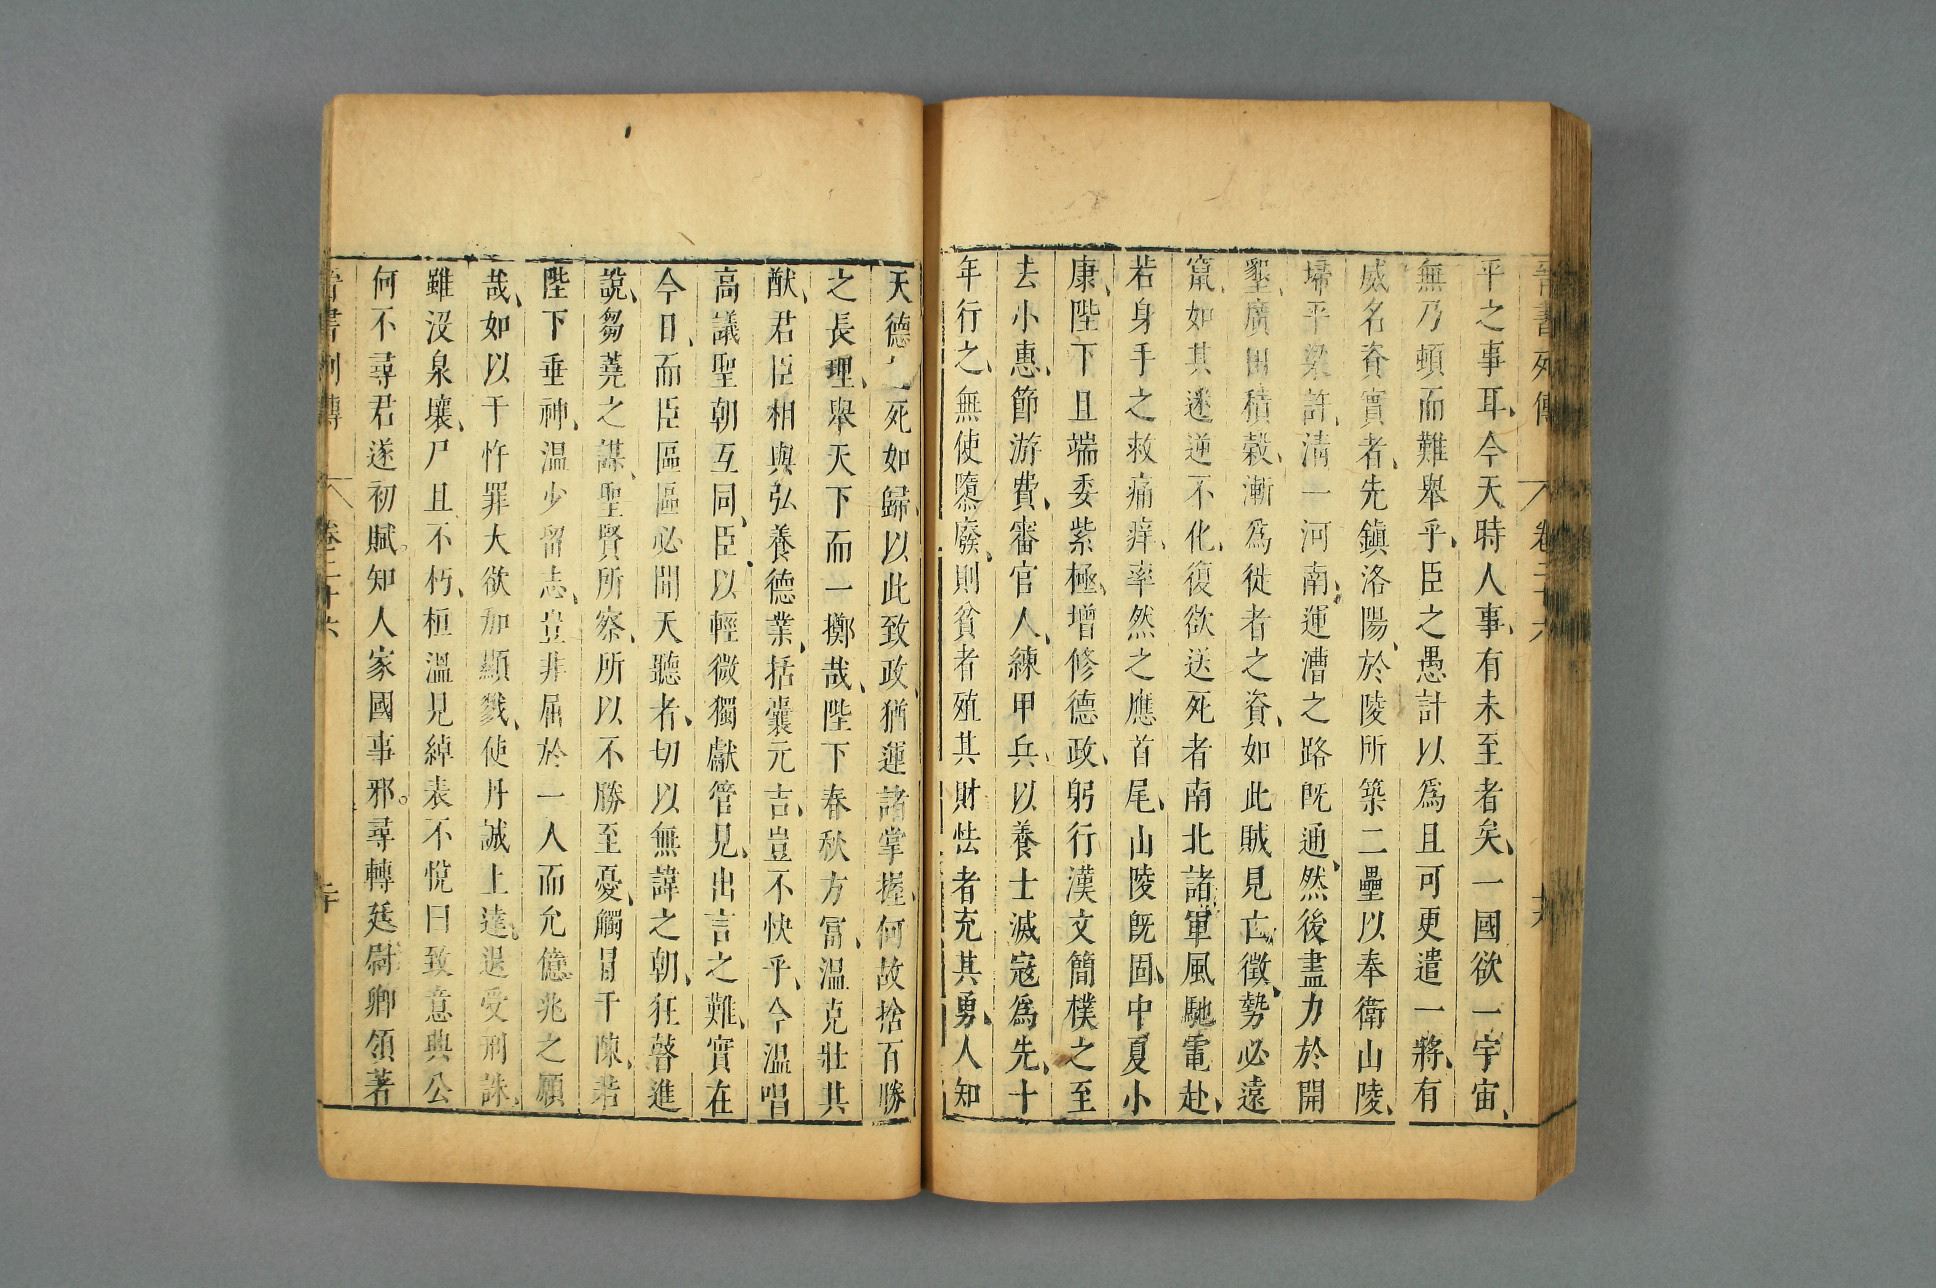 晉書列傳 卷二十六 十九
平之事耳今天時人事有未至者矣一國欲一宇宙
無乃頓而難舉乎臣之愚計以爲且可更遣一將有
威名資實者先鎮洛陽於陵所築二壘以奉衛山陵
埽平梁許清一河南運漕之路旣通然後盡力於開
墾廣田積穀漸爲徙者之資如此賊見亡徵勢必遠
竄如其迷逆不化復欲送死者南北諸軍風馳電赴
若身手之救痛痒率然之應首尾山陵旣固中夏小
康陛下且端委紫極增修德政躬行漢文簡樸之至
去小惠節游費審官人練甲兵以養士滅寇爲先十
年行之無使隳廢則貧者殖其財怯者充其勇人知
天德 死如歸以此致政猶運諸掌握何故捨百勝
之長理舉天下而一擲哉陛下春秋方富溫克壯其
猷君臣相與弘養德業括囊元吉豈不快乎今溫唱
高議聖朝互同臣以輕微獨獻管見出言之難實在
今日而臣區區必聞天聽者切以無諱之朝狂瞽進
說芻蕘之謀聖賢所察所以不勝至憂觸冒干陳若
陛下垂神溫少留志豈非屈於一人而允億兆之願
哉如以干忤罪大欲加顯戮使丹誠上達退受刑誅
雖沒泉壤尸且不朽桓溫見綽表不悅曰致意興公
何不尋君遂初賦知人家國事邪尋轉廷尉卿領著
晉書列傳 卷二十六 二十